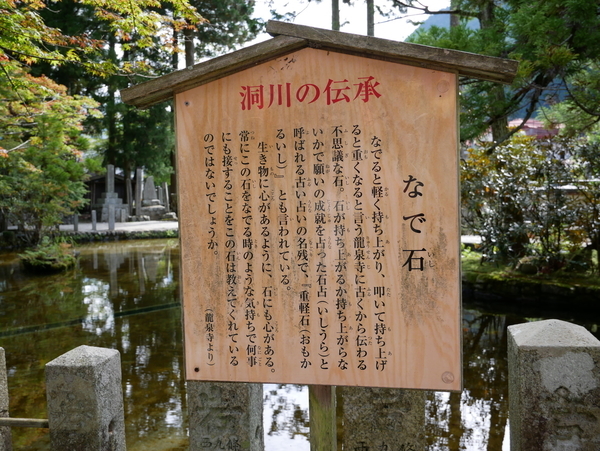 洞川の伝承
なで石
いし
なでると軽く持ち上がり、叩いて持ち上げ
ると重くなると言う龍泉寺に古くから伝わる
不思議な石。石が持ち上がるか持ち上がらな
いかで願いの成就を占った石占（いしうら）と
呼ばれる古い占いの名残で、『重軽石（おもか
るいし）』とも言われている。
生き物に心があるように、石にも心がある。
常にこの石をなでる時のような気持ちで何事
にも接することをこの石は教えてくれている
のではないでしょうか。
（龍泉寺より）